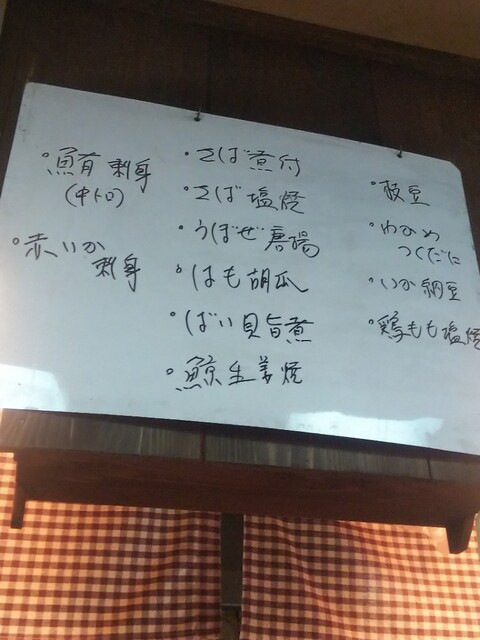 ・鮪刺身
(中トロ)
・赤いか
刺身
・さば煮付
・さば塩焼
・うぼぜ唐揚
・はも胡瓜
・ばい貝旨煮
・鯨生姜焼
・枝豆
・わかめ
つくだに
・いか納豆
・鶏もも塩焼